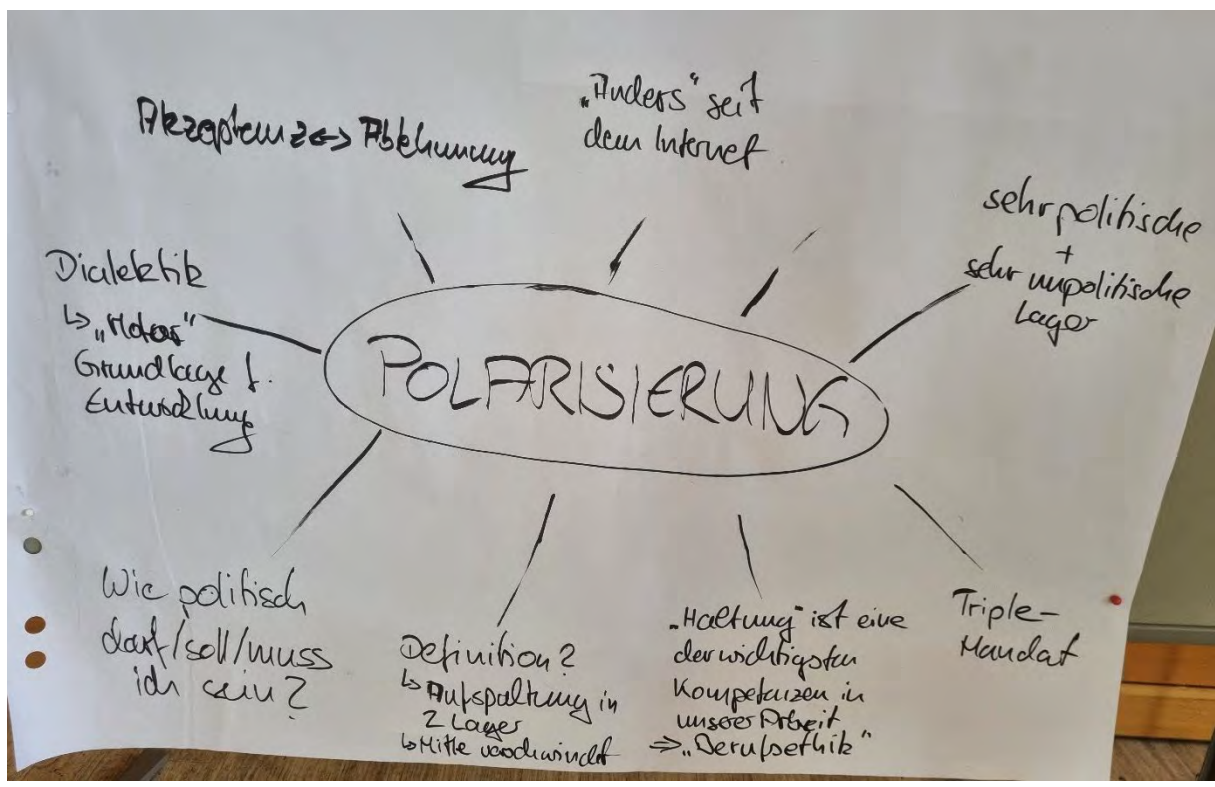 Akzeptanz <-> Ablehnung
„Anders“ seit
dem Internet
sehr politische
+
sehr unpolitische
Lager
Dialektik
↳ „Motor“
Grundlage f.
Entwicklung
POLARISIERUNG
Wie politisch
darf/soll/muss
ich sein?
Definition?
↳ Aufspaltung in
2 Lager
↳ Mitte verschwindet
„Haltung“ ist eine
der wichtigsten
Kompetenzen in
unserer Arbeit
⇒ „Berufsethik“
Triple-
Mandat